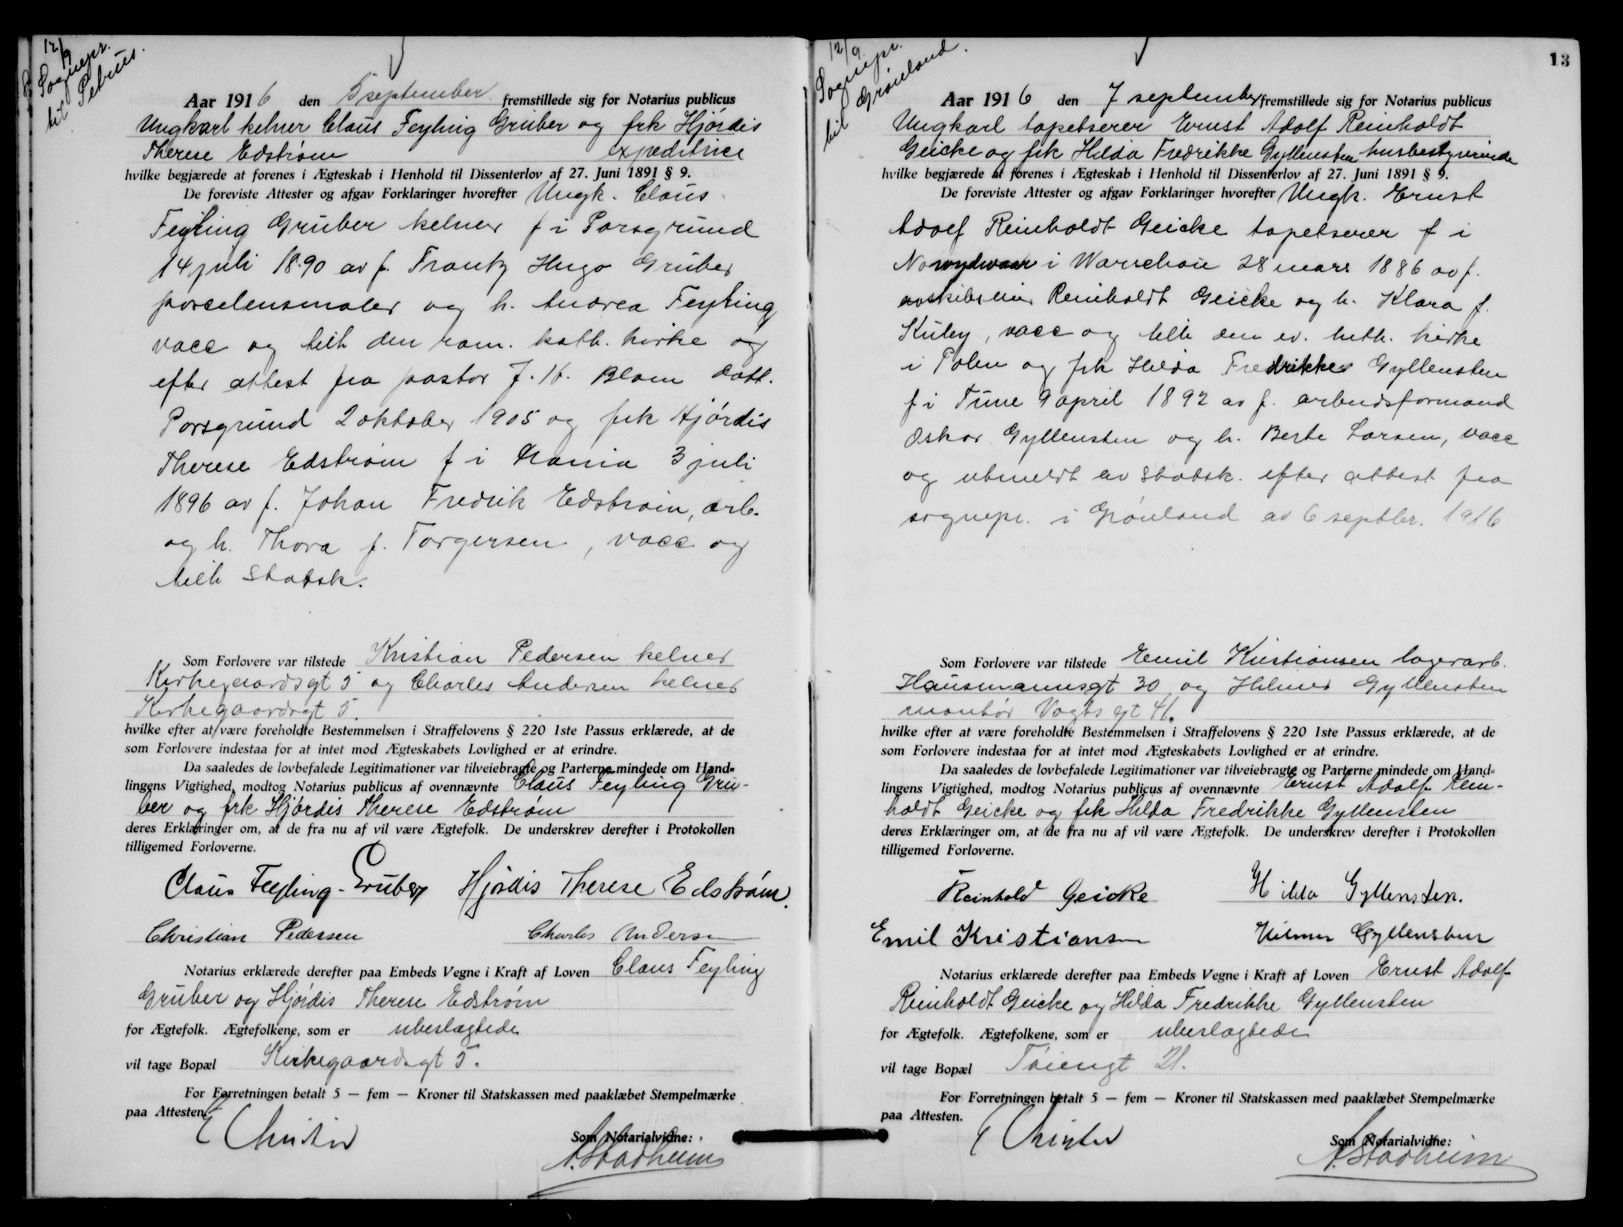 12/9
Sognepr.
til Petrus.
Aar 1916 den 5 september fremstillede sig for Notarius publicus
Ungkarl kelner Claus Feyling Gruber og frk Hjördis
Therese Edström expeditrice
hvilke begjærede at forenes i Ægteskab i Henhold til Dissenterlov af 27. Juni 1891 § 9.
De foreviste Attester og afgav Forklaringer hvorefter Ungk. Claus
Feyling Gruber kelner f i Porsgrund
14 juli 1890 av f. Frantz Hugo Gruber
porcelensmaler og h. Andrea Feyling
vacc og tilh den rom. kath. kirke og
efter attest fra pastor J. H. Blom datt.
Porsgrund 2 oktober 1905 og frk Hjördis
Therese Edström f i Krania 3 juli
1896 av f. Johan Fredrik Edström, arb.
og h. Thora f. Torgersen, vacc og
tilh Statsk.
Som Forlovere var tilstede Kristian Pedersen kelner
Kirkegaardsgt 5 og Charles Andersen kelner
Kirkegaardsgt 5.
hvilke efter at være foreholdte Bestemmelsen i Straffelovens § 220 1ste Passus erklærede, at de
som Forlovere indestaa for at intet mod Ægteskabets Lovlighed er at erindre.
Da saaledes de lovbefalede Legitimationer var tilveiebragte og Parterne mindede om Hand-
lingens Vigtighed, modtog Notarius publicus af ovennævnte Claus Feyling Gru-
ber og frk Hjördis Therese Edström
deres Erklæringer om, at de fra nu af vil være Ægtefolk. De underskrev derefter i Protokollen
tilligemed Forloverne.
Claus Feyling-Gruber Hjördis Therese Edström.
Christian Pedersen Charles Andersen
Notarius erklærede derefter paa Embeds Vegne i Kraft af Loven Claus Feyling
Gruber og Hjördis Therese Edström
for Ægtefolk. Ægtefolkene, som er ubeslægtede
vil tage Bopæl Kirkegaardsgt 5.
For Forretningen betalt 5 — fem — Kroner til Statskassen med paaklæbet Stempelmærke
paa Attesten.
Som Notarialvidne:
A. Stadheim
12/9
Sognepr.
til Grönland.
13
Aar 1916 den 7 september fremstillede sig for Notarius publicus
Ungkarl tapetserer Ernst Adolf Reinholdt
Geicke og frk Hilda Fredrikke Gyllensten husbestyrerinde
hvilke begjærede at forenes i Ægteskab i Henhold til Dissenterlov af 27. Juni 1891 § 9.
De foreviste Attester og afgav Forklaringer hvorefter Ungk. Ernst
Adolf Reinholdt Geicke tapetserer f i
i Warschau 28 mars 1886 av f.
Reinholdt Geicke og h. Klara f.
vacc og tilh den ev. luth. kirke
i Polen og frk Hilda Fredrikke Gyllensten
f i Tune 9 april 1892 av f. arbeidsformand
Oskar Gyllensten og h. Berte Larsen, vacc
og utmeldt av Statsk. efter attest fra
sognepr. i Grönland av 6 septbr. 1916
Som Forlovere var tilstede Emil Kristiansen lagerarb.
Hausmannsgt 30 og Hilmer Gyllensten
montör Vogts gt 41.
hvilke efter at være foreholdte Bestemmelsen i Straffelovens § 220 1ste Passus erklærede, at de
som Forlovere indestaa for at intet mod Ægteskabets Lovlighed er at erindre.
Da saaledes de lovbefalede Legitimationer var tilveiebragte og Parterne mindede om Hand-
lingens Vigtighed, modtog Notarius publicus af ovennævnte Ernst Adolf Rein-
holdt Geicke og frk Hilda Fredrikke Gyllensten
deres Erklæringer om, at de fra nu af vil være Ægtefolk. De underskrev derefter i Protokollen
tilligemed Forloverne.
Reinhold Geicke Hilda Gyllensten.
Emil Kristiansen Hilmer Gyllensten
Notarius erklærede derefter paa Embeds Vegne i Kraft af Loven Ernst Adolf
Reinholdt Geicke og Hilda Fredrikke Gyllensten
for Ægtefolk. Ægtefolkene, som er ubeslægtede
vil tage Bopæl Töiengt 21.
For Forretningen betalt 5 — fem — Kroner til Statskassen med paaklæbet Stempelmærke
paa Attesten.
Som Notarialvidne:
A. Stadheim